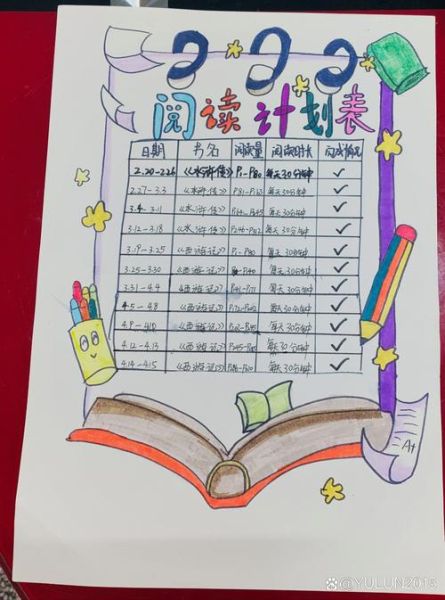 阅读计划表
日期 书名 阅读量 阅读时长 完成情况
2.20-2.26 《水浒传》 P1-P80 每天30分钟 ✓
2.27-3.3 《水浒传》 每天30分钟 ✓
3.4-3.11 《水浒传》 每天30分钟 ✓
3.12-3.18 《水浒传》 每天30分钟 ✓
3.19-3.25 《西游记》 每天30分钟 ✓
3.25-3.30 《西游记》 每天30分钟 ✓
3.31-4.4 《西游记》 每天30分钟 ✓
4.5-4.8 《西游记》 每天30分钟 ✓
4.9-4.10 《西游记》 每天30分钟 ✓
4.12-4.13 《西游记》 每天30分钟 ✓
4.14-4.15 《西游记》 每天30分钟 ✓
A+
@YULUN2015